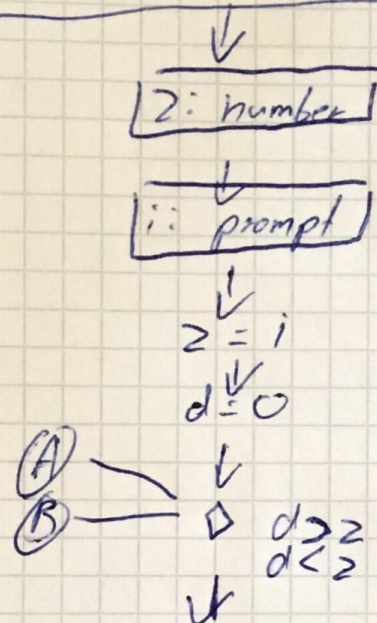 2: number
i: prompt
2 = i
d = 0
A
B
d > 2
d < 2